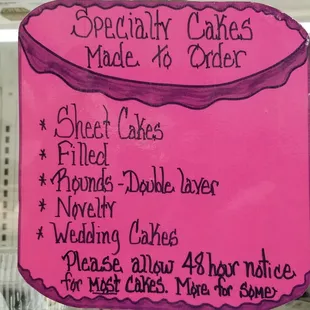 Specialty Cakes
Made to Order
* Sheet Cakes
* Filled
* Rounds - Double layer
* Novelty
* Wedding Cakes
Please allow 48 hour notice
for MOST cakes. More for some